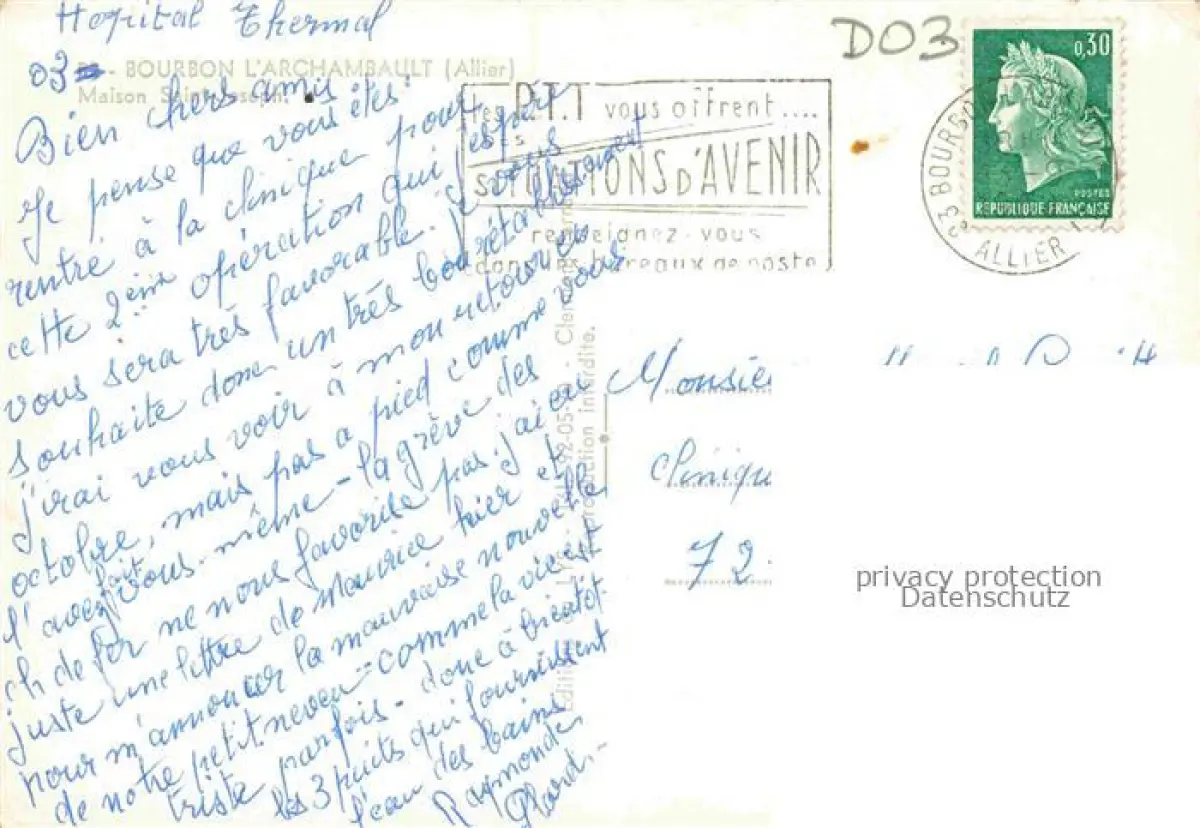 Hopital Thermal
03 - BOURBON L'ARCHAMBAULT (Allier)
Maison Saint Joseph.
Bien chers amis
Je pense que vous êtes
rentré à la clinique pour
cette 2ème opération qui j'espère
vous sera très favorable. Je vous
souhaite donc un très bon rétablissement
j'irai vous voir à mon retour en
octobre, mais pas a pied comme vous
l'avez fait vous-même - la grève des
ch de fer ne nous favorise pas. j'ai eu
juste une lettre de Maurice hier et
pour m'annoncer la mauvaise nouvelle
de notre petit. neveu = comme la vie est
triste parfois - donc à bientôt.
les 3 puits qui fournissent
l'eau des bains
Raymonde
D03
0,30
POSTES
RÉPUBLIQUE FRANÇAISE
les P.T.T vous offrent....
des
SITUATIONS D'AVENIR
renseignez-vous
dans les bureaux de poste
BOURBO
ALLIER
Monsie
Cliniqu
72
Editions
92-05-
production interdite.
privacy protection
Datenschutz